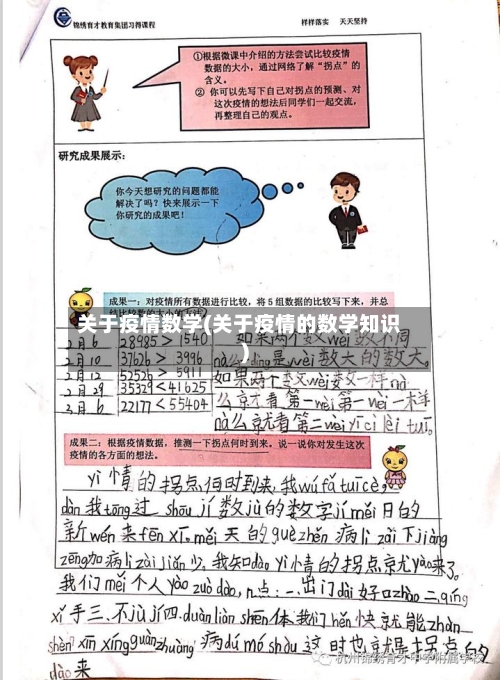 锦绣育才教育集团习得课程
样样落实 天天坚持
①根据微课中介绍的方法尝试比较疫情
数据的大小，通过网络了解“拐点”的
含义。
② 你可以先写下自己对拐点的预测、对
这次疫情的想法后同学们一起交流，
再整理自己的观点。
研究成果展示：
你今天想研究的问题都能
解决了吗？快来展示一下
你研究的成果吧！
成果一：对疫情所有数据进行比较，将 5 组数据的比较写下来，并总
关于疫情数学(关于疫情的数学知识
)
2月6 28985 > 1540
2月10 37626 > 3996
月12 52526 > 5911
2月29 35329<41625
3月6 22177<55404
如果两个数wèi数不同
是wèi数大的数大。
如果两个数wèi数一样nà
么京尤看第一wèi第一wèi一样
nà么就看第二wèi yī cì lèi tuī。
成果二：根据疫情数据，推测一下拐点何时到来。说一说你对发生这次
疫情的各方面的想法。
yì情的拐点何时到来,我wú fǎ tuī cè,
dàn我tōng过 shōu jí数jù的数字jí měi日的
新wén来fēn xī。měi天的què zhěn病lì zài下jiàng
zēng加病lì zài jiǎn少,我知dào yì情的拐点京尤yào来了。
我们měi个人yào zuò dào,n点:一、出门dài好口zhào二,qíng
xǐ手三、不jù jí四.duàn liàn shēn体.我们hěn快就能zhàn
shèn xīn xíng guān zhuàng病dú mó shòu这时也就是拐点的
dào来
杭州锦绣育才中学附属学校